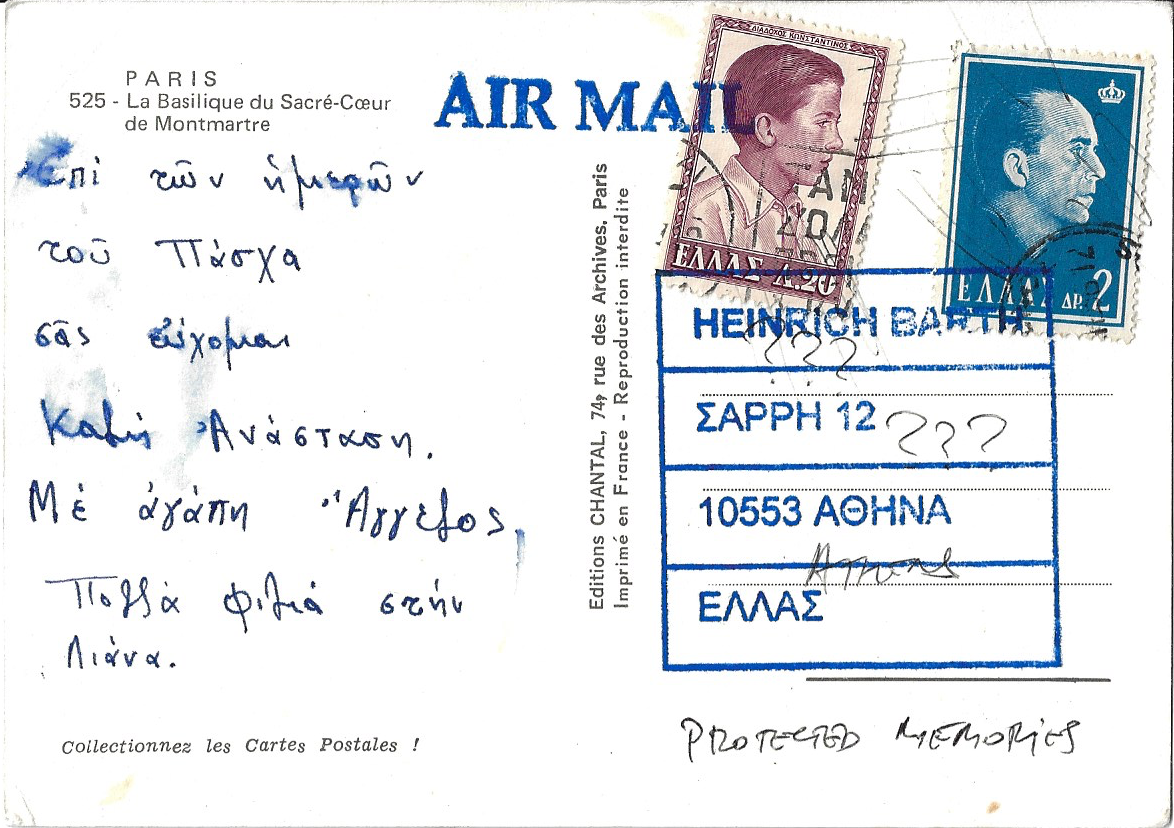 PARIS
525 - La Basilique du Sacré-Cœur
de Montmartre
AIR MAIL
Ἐπὶ τῶν ἡμερῶν
τοῦ Πάσχα
σᾶς εὔχομαι
Καλὴ Ἀνάσταση.
Μὲ ἀγάπη Ἄγγελος,
Πολλὰ φιλιά στήν
Λιάνα.
Collectionnez les Cartes Postales !
Editions CHANTAL, 74, rue des Archives, Paris
Imprimé en France - Reproduction interdite
ΔΙΑΔΟΧΟΣ ΚΩΝΣΤΑΝΤΙΝΟΣ
ΕΛΛΑΣ Λ.20
ΕΛΛΑΣ ΔΡ.2
HEINRICH BARTH
???
ΣΑΡΡΗ 12 ???
10553 ΑΘΗΝΑ
ATHENS
ΕΛΛΑΣ
PROTECTED MEMORIES